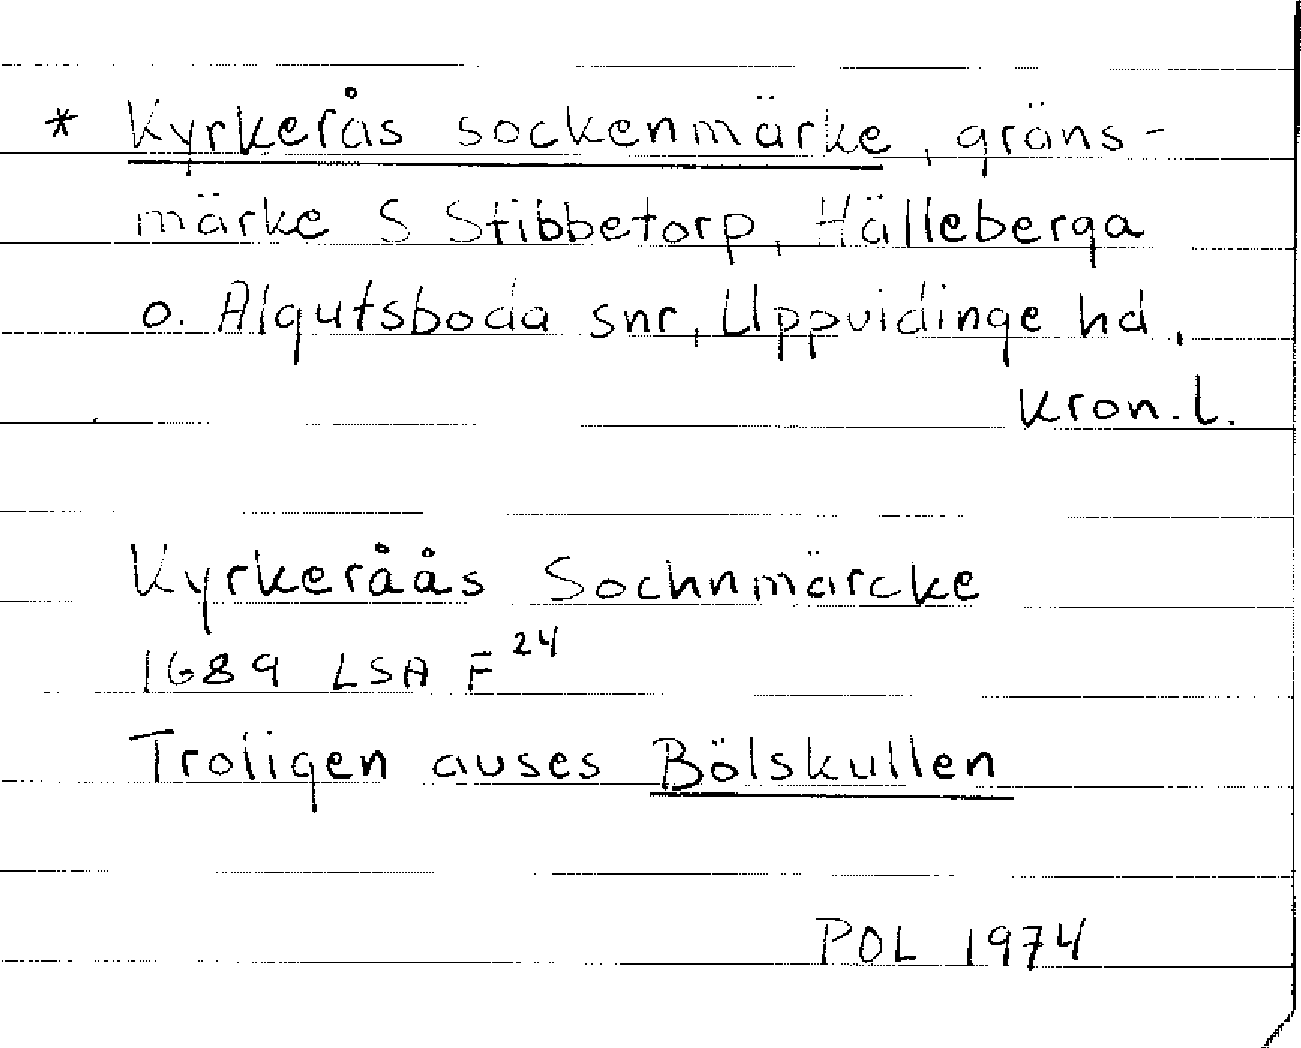 * Kyrkerås sockenmärke, gräns-
märke S Stibbetorp, Hälleberga
o. Algutsboda snr, Uppvidinge hd,
Kron. l.
Kyrkeråås Sochnmärcke
1689 LSA F 24
Troligen avses Bölskullen
POL 1974